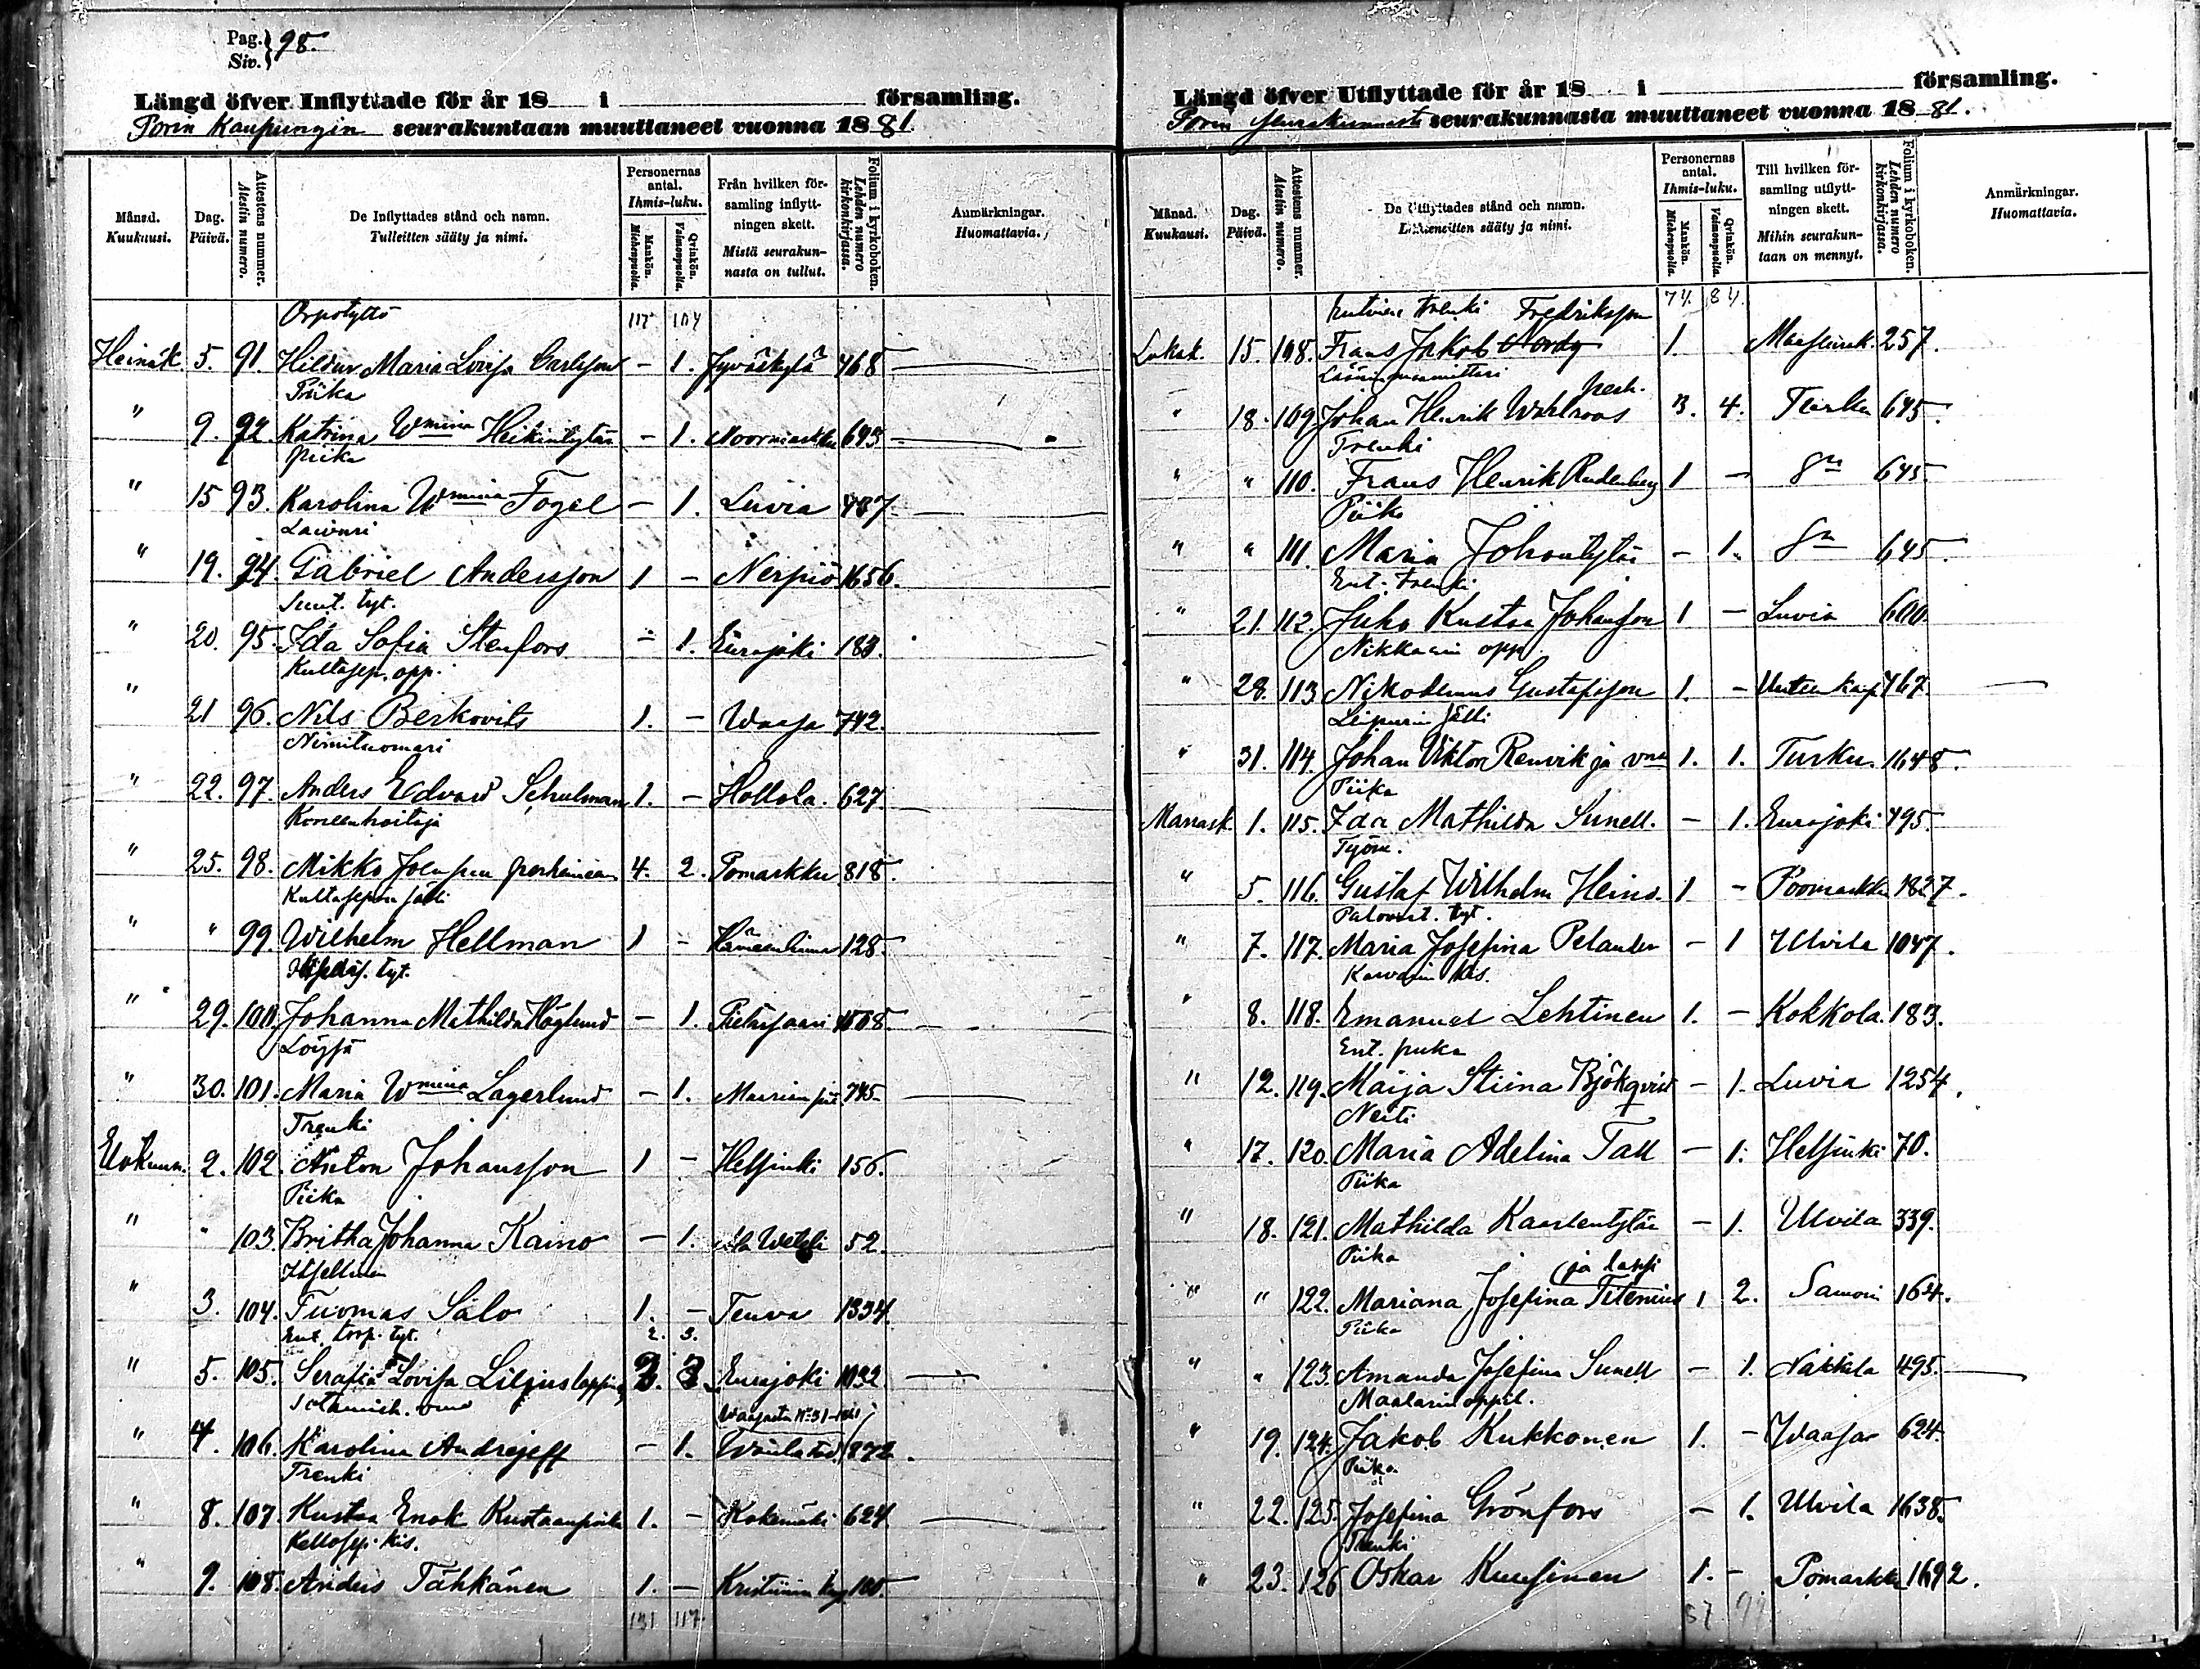 Pag. Siv. } 98.
Längd öfver Inflyttade för år 18 i församling.
Porin Kaupungin seurakuntaan muuttaneet vuonna 1881.
Månad. Kuukausi. Dag. Päivä. Attestens nummer. Atestin numero. De Inflyttades stånd och namn. Tulleitten sääty ja nimi. Personernas antal. Ihmis-luku. Mankön. Miehenpuolta. Qvinkön. Vaimonpuolta. Från hvilken församling inflyttningen skett. Mistä seurakunnasta on tullut. Folium i kyrkoboken. Lehden numero kirkonkirjassa. Anmärkningar. Huomattavia.
Orpotyttö 117 104
Heinäk. 5. 91. Hildur Maria Lovisa Carlsson — 1. Jyväskylä 468
Piika
" 9. 92. Katrina Wmina Heikintytär — 1. Noormarkku 695
Piika
" 15 93. Karolina Wmina Fogel — 1. Luvia 487
Laivuri
" 19. 94. Gabriel Andersson 1 — Nerpiö 1656.
Suut. tyt.
" 20. 95. Ida Sofia Stenfors — 1. Eurajoki 183.
Kultasep. opp.
" 21 96. Nils Berkovits 1. — Waasa 742.
Nimituomari
" 22. 97. Anders Edvard Schulman 1. — Hollola. 627.
Koneenhoitaja
" 25. 98. Mikko perheineen 4. 2. Pomarkku 818.
Kultasepän sälli
" " 99. Wilhelm Hellman 1 — Hämeenlinna 128.
tyt.
" 29. 100. Johanna Mathilda Höglund — 1. Pietarsaari
Loysjä
" 30. 101. Maria Wmina Lagerlund — 1. 745
Trenki
Elokuun. 2. 102. Anton Johansson 1 — Helsinki 156.
Piika
" " 103. Britha Johanna Kaino — 1. Weteli 52.
Itsellinen
" 3. 104. Tuomas Salo 1. — Teuva 1334.
Ent. torp. tyt. 2. 3.
" 5. 105. Serafia Lovisa Liljus 2. 3 Eurajoki 1032
Sotamieh. vmo
" 4. 106. Karolina Andrejeff — 1. 872.
Trenki
" 8. 107 Kustaa Enok Kustaanpoika 1. — Kokemäki 624.
Kellosep. kis.
" 9. 108. Anders Tähkänen 1. — 100.
131 117.
Längd öfver Utflyttade för år 18 i församling.
Porin seurakunnasta muuttaneet vuonna 1881.
Månad. Kuukausi. Dag. Päivä. Attestens nummer. Atestin numero. De Utflyttades stånd och namn. sääty ja nimi. Personernas antal. Ihmis-luku. Mankön. Miehenpuolta. Qvinkön. Vaimonpuolta. Till hvilken församling utflyttningen skett. Mihin seurakuntaan on mennyt. Folium i kyrkoboken. Lehden numero kirkonkirjassa. Anmärkningar. Huomattavia.
Entinen trenki Fredriksson 74. 84.
Lokak. 15. 108. Frans Jakob Nordq 1. 257.
perh.
" 18. 109. Johan Henrik Wahlroos 3. 4. Turku 645.
Trenki
" " 110. Frans Henrik Rudenberg 1 — 645
Piika
" " 111. Maria Johantytär — 1. 645
Ent. trenki
" 21. 112. Juho Kustaa Johansson 1 — Luvia 600.
Nikkarin opp.
" 28. 113 Nikodemus Gustafsson 1. — 767
Leipurin sälli
" 31. 114. Johan Viktor Renvik ja vmo 1. 1. Turku. 1648.
Piika
Marrask. 1. 115. Ida Mathilda Sunell. — 1. Eurajoki 495.
Työm.
" 5. 116. Gustaf Wilhelm Heino. 1 — Poomarkku 1827.
Palovart. tyt.
" 7. 117. Maria Josefina Pelander — 1 Ulvila 1047.
Karvarin kis.
" 8. 118. Emanuel Lehtinen 1. — Kokkola. 183.
Ent. piika
" 12. 119. Maija Stiina Björkqvist — 1. Luvia 1254.
Neiti
" 17. 120. Maria Adelina Tall — 1. Helsinki 70.
Piika
" 18. 121. Mathilda Kaarlentytär — 1. Ulvila 339.
Piika ja lapsi
" " 122. Mariana Josefina Titenius 1 2. 164.
Piika
" " 123. Amanda Josefina Sunell — 1. Nakkila 495.
Maalarin oppil.
" 19. 124. Jakob Kukkonen 1. — Waasa 624.
Piika
" 22. 125. Josefina Grönfors — 1. Ulvila 1638.
Trenki
" 23. 126 Oskar Kuusinen 1. — Pomarkku 1692.
87 99